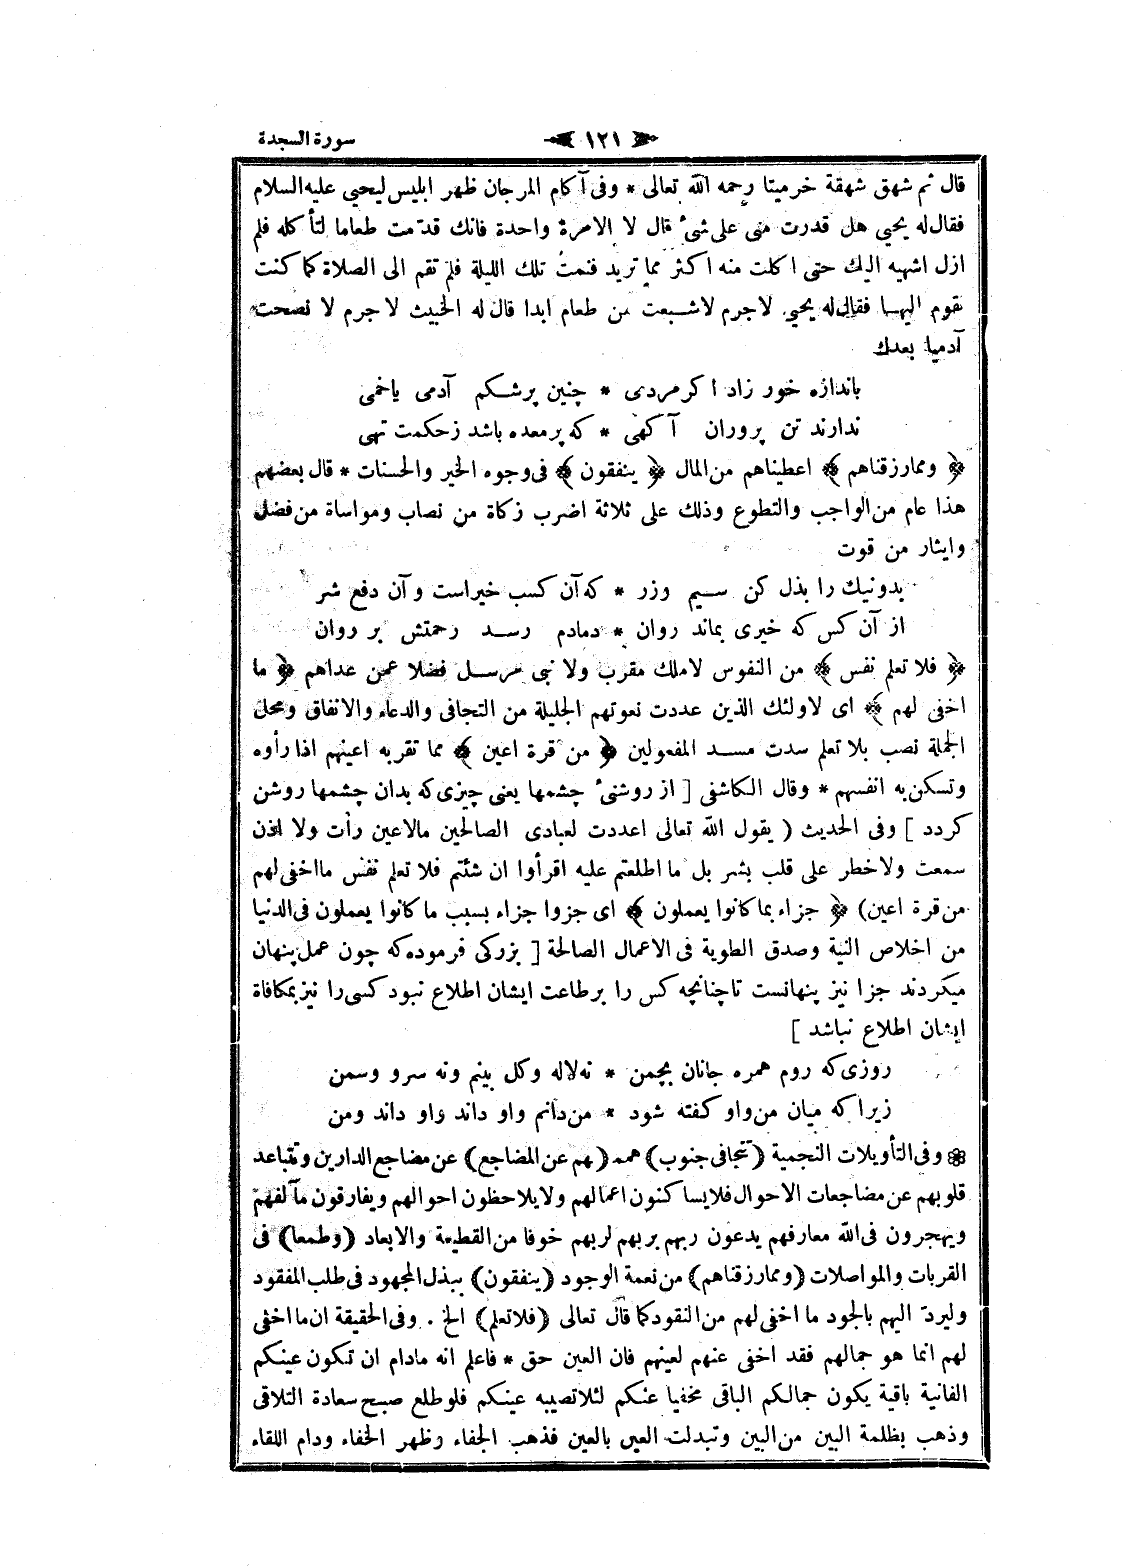 سورة السجدة
١٢١
قال ثم شهق شهقة خر ميتا رحمه الله تعالى * وفى آكام المرجان ظهر ابليس ليحيى عليه السلام
فقال له يحيى هل قدرت منى على شئ قال لا الا مرة واحدة فانك قدمت طعاما لتأكله فلم
ازل اشهيه اليك حتى اكلت منه اكثر مما تريد فنمت تلك الليلة فلم تقم الى الصلاة كما كنت
تقوم اليها فقال له يحيى لا جرم لا شبعت من طعام ابدا قال له الخبيث لا جرم لا نصحت
آدميا بعدك
باندازه خور زاد اكر مردى * چنين پرشكم آدمى ياخمى
ندارند تن پروران آكهى * كه پر معده باشد زحكمت تهى
﴿ ومما رزقناهم ﴾ اعطيناهم من المال ﴿ ينفقون ﴾ فى وجوه الخير والحسنات * قال بعضهم
هذا عام من الواجب والتطوع وذلك على ثلاثة اضرب زكاة من نصاب ومواساة من فضل
وايثار من قوت
بدونيك را بذل كن سيم وزر * كه آن كسب خيراست وآن دفع شر
از آن كس كه خيرى بماند روان * دمادم رسد رحمتش بر روان
﴿ فلا تعلم نفس ﴾ من النفوس لا ملك مقرب ولا نبى مرسل فضلا عمن عداهم ﴿ ما
اخفى لهم ﴾ اى لاولئك الذين عددت نعوتهم الجليلة من التجافى والدعاء والانفاق ومحل
الجملة نصب بلا تعلم سدت مسد المفعولين ﴿ من قرة اعين ﴾ مما تقربه اعينهم اذا رأوه
وتسكن به انفسهم * وقال الكاشفى [ از روشنئ چشمها يعنى چيزى كه بدان چشمها روشن
كردد ] وفى الحديث ( يقول الله تعالى اعددت لعبادى الصالحين مالا عين رأت ولا اذن
سمعت ولا خطر على قلب بشر بل ما اطلعتم عليه اقرأوا ان شئتم فلا تعلم نفس ما اخفى لهم
من قرة اعين) ﴿ جزاء بما كانوا يعملون ﴾ اى جزوا جزاء بسبب ما كانوا يعملون فى الدنيا
من اخلاص النية وصدق الطوية فى الاعمال الصالحة [ بزركى فرموده كه چون عمل پنهان
ميكردند جزا نيز پنهانست تا چنانچه كس را بر طاعت ايشان اطلاع نبود كسى را نيز بمكافاة
ايشان اطلاع نباشد ]
روزى كه روم همره جانان بچمن * نه لاله وكل بينم ونه سرو وسمن
زيرا كه ميان من واو كفته شود * من دانم واو داند واو داند ومن
وفى التأويلات النجمية (تتجافى جنوب) هممهم (هم عن المضاجع) عن مضاجع الدارين وتتباعد
قلوبهم عن مضاجعات الاحوال فلا يساكنون اعمالهم ولا يلاحظون احوالهم ويفارقون مآلفهم
ويهجرون فى الله معارفهم يدعون ربهم بربهم لربهم خوفا من القطيعة والابعاد (وطمعا) فى
القربات والمواصلات (ومما رزقناهم) من نعمة الوجود (ينفقون) ببذل المجهود فى طلب المفقود
وليرد اليهم بالجود ما اخفى لهم من النقود كما قال تعالى (فلا تعلم) الخ . وفى الحقيقة ان ما اخفى
لهم انما هو جمالهم فقد اخفى عنهم لعينهم فان العين حق * فاعلم انه مادام ان تكون عينكم
الفانية باقية يكون جمالكم الباقى مخفيا عنكم لئلا تصيبه عينكم فلو طلع صبح سعادة التلاقى
وذهب بظلمة البين من البين وتبدلت العين بالعين فذهب الجفاء وظهر الخفاء ودام اللقاء